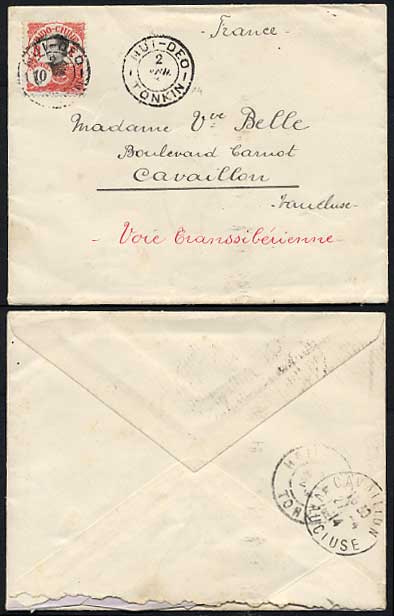 - France -
INDO-CHINE
10
NUI-DEO
NUI-DEO
2
TONKIN
Madame Vve Belle
Boulevard Carnot
Cavaillon
Vaucluse
- Voie Transsibérienne -
CAVAILLON
VAUCLUSE
14